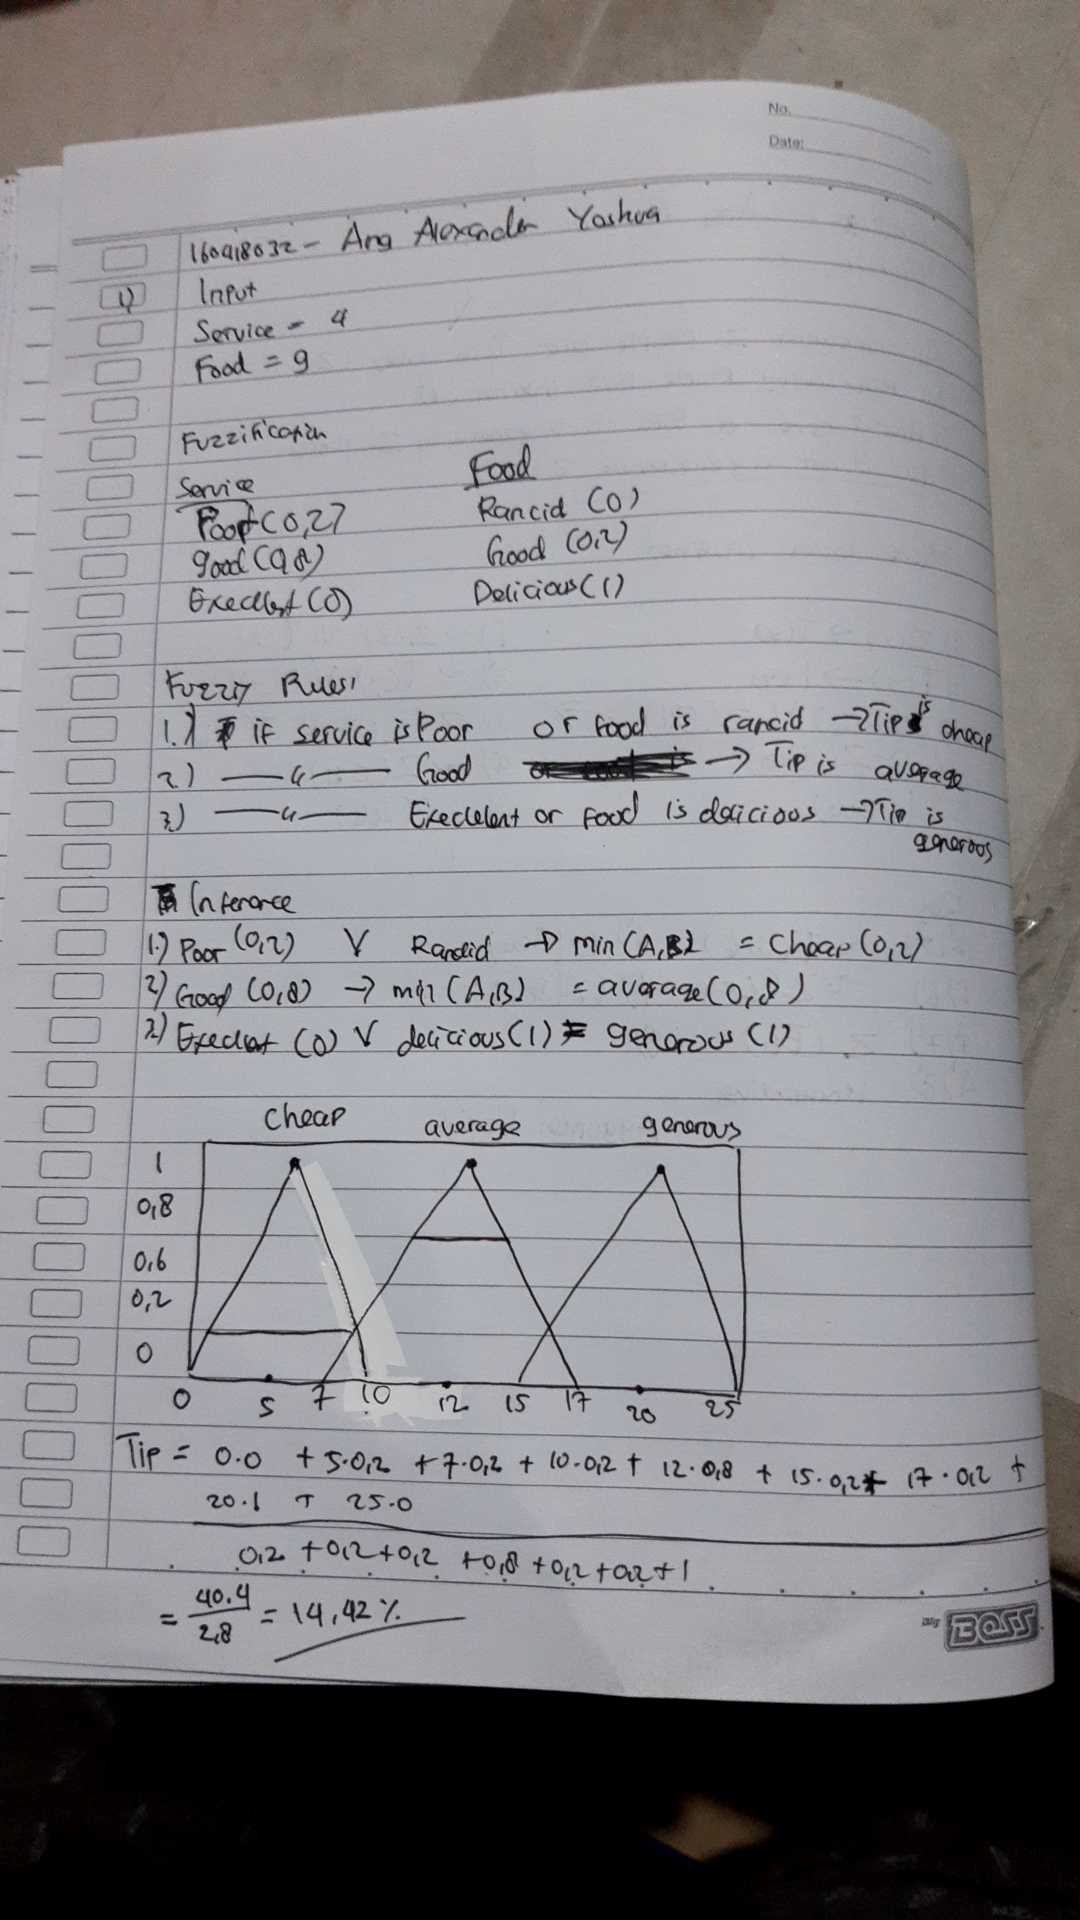 No.
Date:
160418032 - Ang Alexander Yoshua
1) Input
Service = 4
Food = 9
Fuzzification
Service Food
Poor (0,2) Rancid (0)
good (0,8) Good (0,2)
Execllent (0) Delicious (1)
Fuzzy Rules:
1.) if service is Poor or food is rancid → Tip is cheap
2) —〃— Good → Tip is average
3) —〃— Execlelent or food is delicious → Tip is
generous
Inference
1.) Poor (0,2) V Rancid → min (A,B) = Cheap (0,2)
2) Good (0,8) → min (A,B) = average (0,8)
3) Execlent (0) V delicious (1) = generous (1)
cheap average generous
1
0,8
0,6
0,2
0
0 5 7 10 12 15 17 20 25
Tip = 0.0 + 5.0,2 + 7.0,2 + 10.0,2 + 12.0,8 + 15.0,2 + 17.0,2 +
20.1 + 25.0
0,2 + 0,2 + 0,2 + 0,8 + 0,2 + 0,2 + 1
= 40.4
2,8 = 14,42 %
BOSS